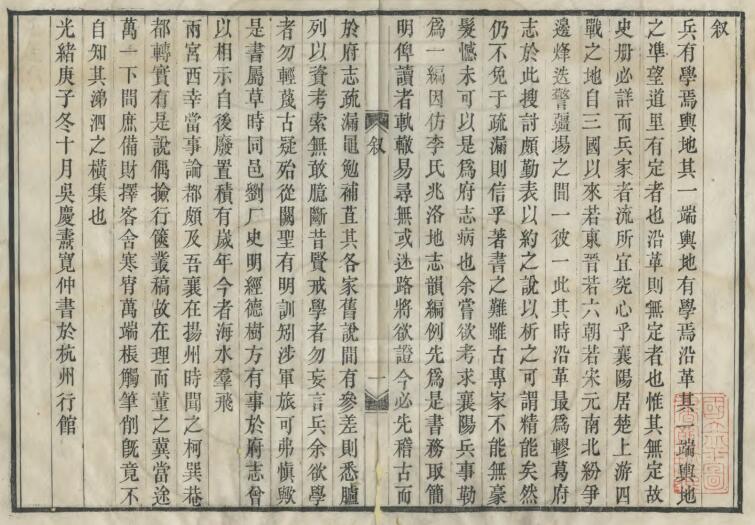 叙
兵有學焉輿地其一端輿地有學焉沿革其一端輿地
之準望道里有定者也沿革則無定者也惟其無定故
史册必詳而兵家者流所宜究心乎襄陽居楚上游四
戰之地自三國以來若東晉若六朝若宋元南北紛爭
邊烽迭警疆場之間一彼一此其時沿革最爲轇葛府
志於此搜討頗勤表以約之說以析之可謂精能矣然
仍不免于疏漏則信乎著書之難雖古專家不能無豪
髮憾未可以是爲府志病也余嘗欲考求襄陽兵事勒
爲一編因仿李氏兆洛地志韻編例先爲是書務取簡
明俾讀者軌轍易尋無或迷路將欲證今必先稽古而
叙
一
於府志疏漏黽勉補苴其各家舊說間有參差則悉臚
列以資考索無敢臆斷昔賢戒學者勿妄言兵余欲學
者勿輕蔑古疑殆從闕聖有明訓矧涉軍旅可弗愼歟
是書屬草時同邑劉厂史明經德樹方有事於府志曾
以相示自後廢置積有歲年今者海水羣飛
兩宮西幸當事論都頗及吾襄在揚州時聞之柯巽菴
都轉實有是說偶撿行篋叢稿故在理而董之冀當途
萬一下問庶備財擇客舍寒宵萬端棖觸筆削旣竟不
自知其涕泗之橫集也
光緖庚子冬十月吳慶燾寬仲書於杭州行館